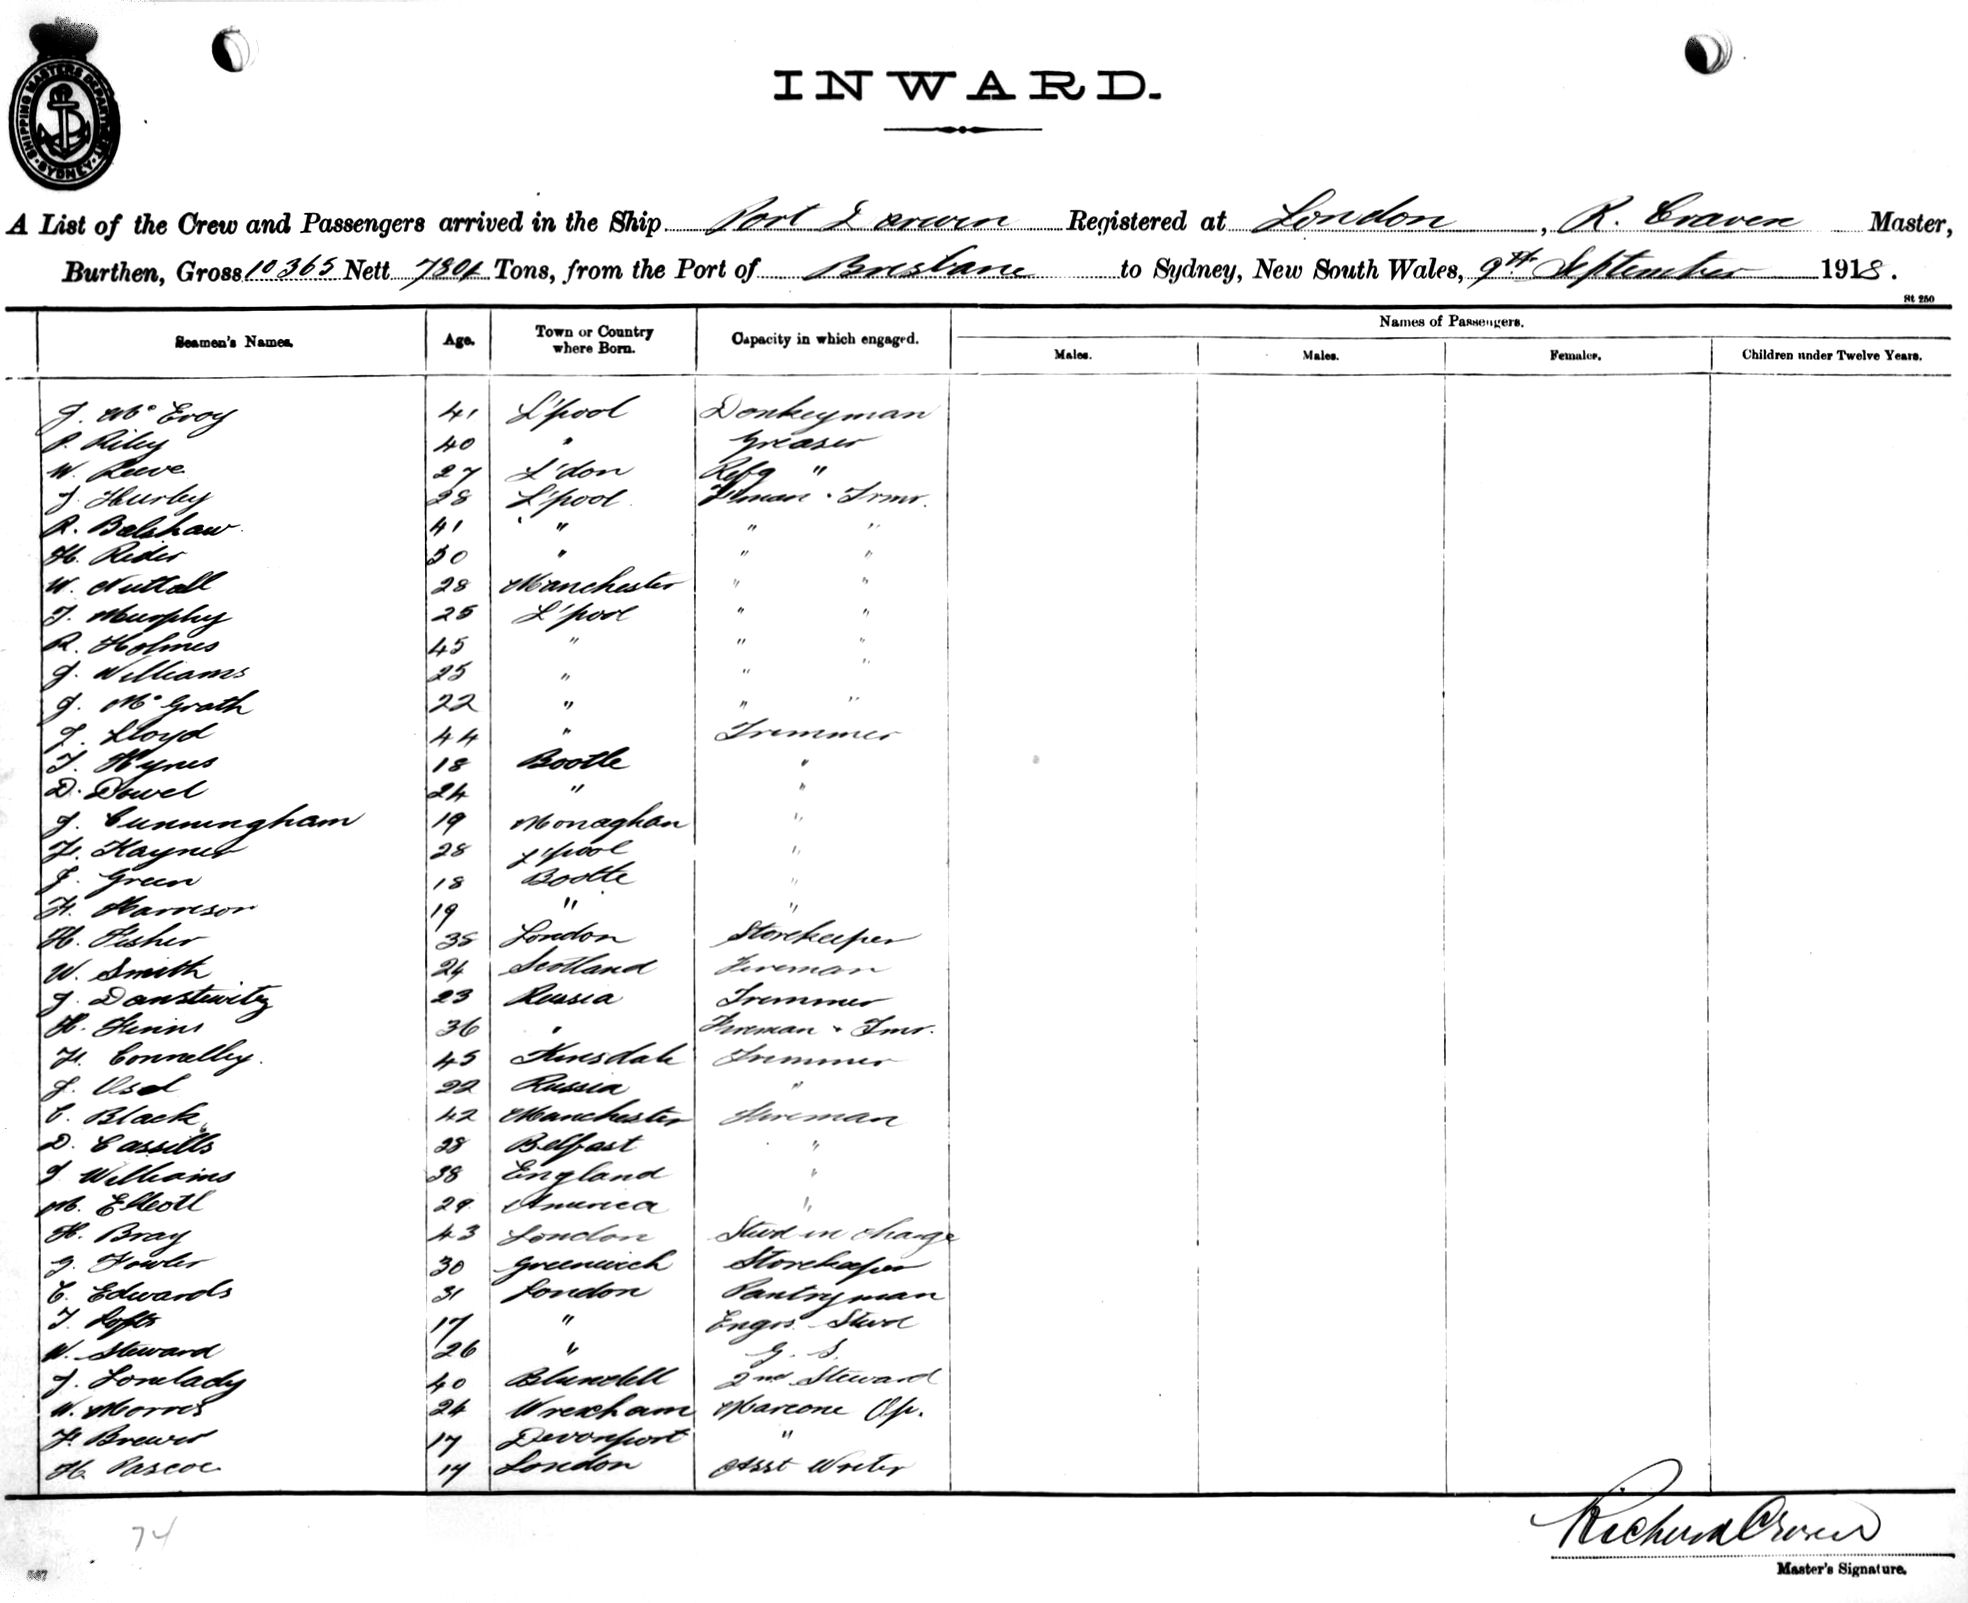 SHIPPING MASTERS DEPARTMENT
SYDNEY
INWARD.
A List of the Crew and Passengers arrived in the Ship Port Darwin Registered at London, R. Craven Master,
Burthen, Gross 10365 Nett 7301 Tons, from the Port of Brisbane to Sydney, New South Wales, 9th September 1918.
St 250
Seamen's Names. Age. Town or Country where Born. Capacity in which engaged. Names of Passengers.
Males. Males. Females. Children under Twelve Years.
J. Mc Evoy 41 L'pool Donkeyman
P. Riley 40 " Greaser
W. Reeve 27 L'don Refg "
J. Hurley 28 L'pool Fireman & Trmr.
R. Balshaw 41 " " "
H. Rider 30 " " "
W. Nuttall 28 Manchester " "
T. Murphy 25 L'pool " "
R. Holmes 45 " " "
J. Williams 25 " " "
J. Mc Grath 22 " " "
J. Lloyd 44 " Trimmer
T. Hynes 18 Bootle "
D. Dowel 24 " "
J. Cunningham 19 Monaghan "
F. Rayner 28 L'pool "
J. Green 18 Bootle "
F. Harrison 19 " "
H. Fisher 38 London Storekeeper
W. Smith 24 Scotland Fireman
J. Danstewitz 23 Russia Trimmer
H. 36 " Fireman & Tmr.
F. Connelley 45 Kinsdale Trimmer
J. 22 Russia "
C. Black 42 Manchester Fireman
D. Cassills 28 Belfast "
J Williams 38 England "
M. Elleott 29 America "
H. Bray 43 London Stwd in charge
G. Fowler 30 Greenwich Storekeeper
C. Edwards 31 London Pantryman
T. Lofts 17 " Engrs. Stwd
W. Steward 26 " G. S.
J. Lovelady 40 Blundell 2nd Steward
W. Morris 24 Wrexham Marcone Op.
F. Brewer 17 Devonport "
H. Pascoe 17 London Asst Writer
74
Richard Craven
Master's Signature.